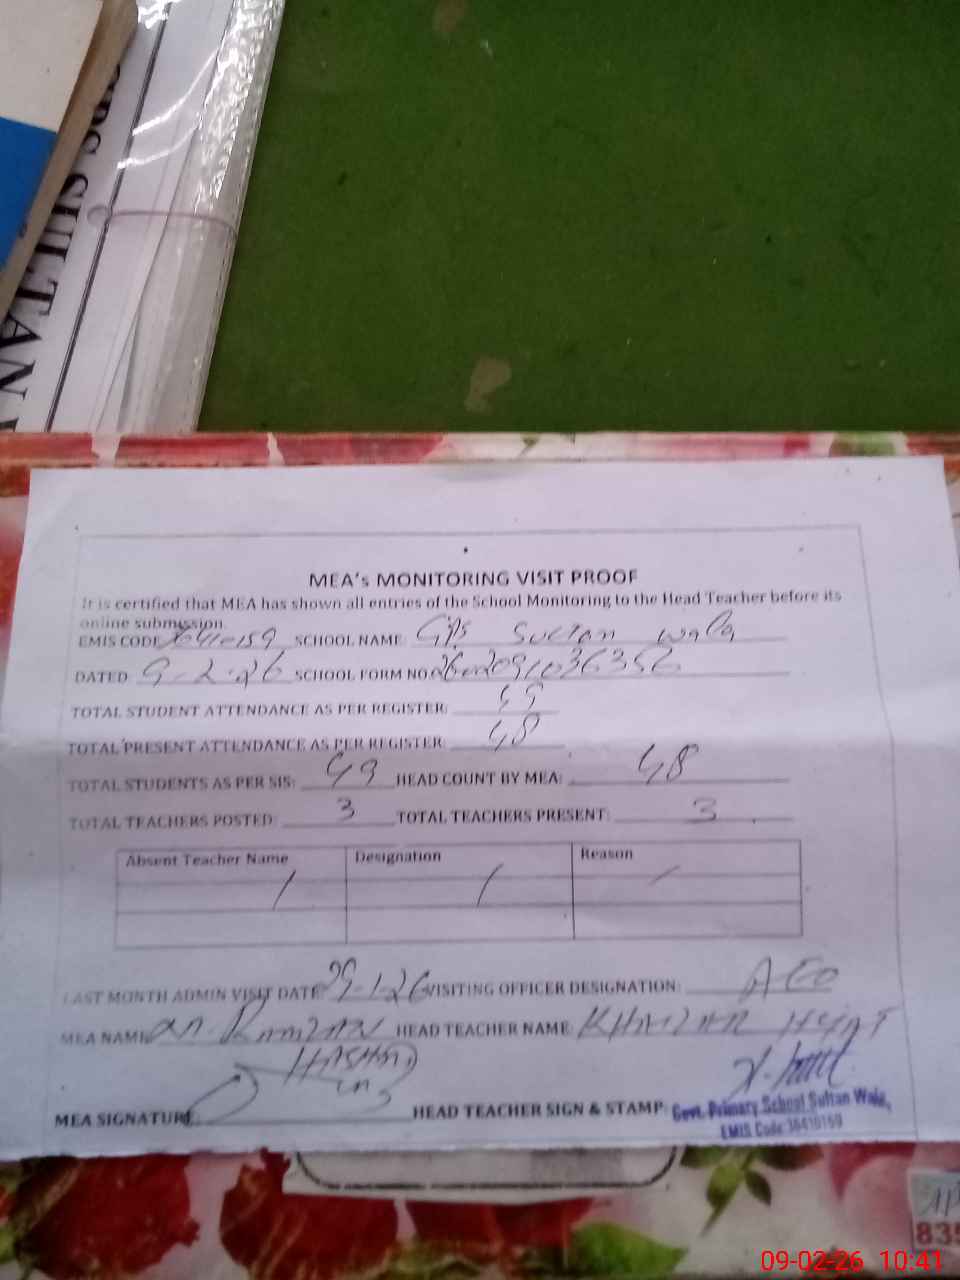 GPS SULTAN
MEA's MONITORING VISIT PROOF
It is certified that MEA has shown all entries of the School Monitoring to the Head Teacher before its
online submission.
EMIS CODE SCHOOL NAME: GPS Sultan wala
DATED 9-2-26 SCHOOL FORM NO
TOTAL STUDENT ATTENDANCE AS PER REGISTER: 49
TOTAL PRESENT ATTENDANCE AS PER REGISTER: 48
TOTAL STUDENTS AS PER SIS: 49 HEAD COUNT BY MEA: 48
TOTAL TEACHERS POSTED: 3 TOTAL TEACHERS PRESENT: 3
Absent Teacher Name Designation Reason
/ / /
LAST MONTH ADMIN VISIT DATE 29-1-26 VISITING OFFICER DESIGNATION: AEO
MEA NAME M. RAMZAN HEAD TEACHER NAME: KHIZAR HYAT
HASHMI
MEA SIGNATURE: HEAD TEACHER SIGN & STAMP:
Govt. Primary School Sultan Wala,
EMIS Code:38410159
835
09-02-26 10:41